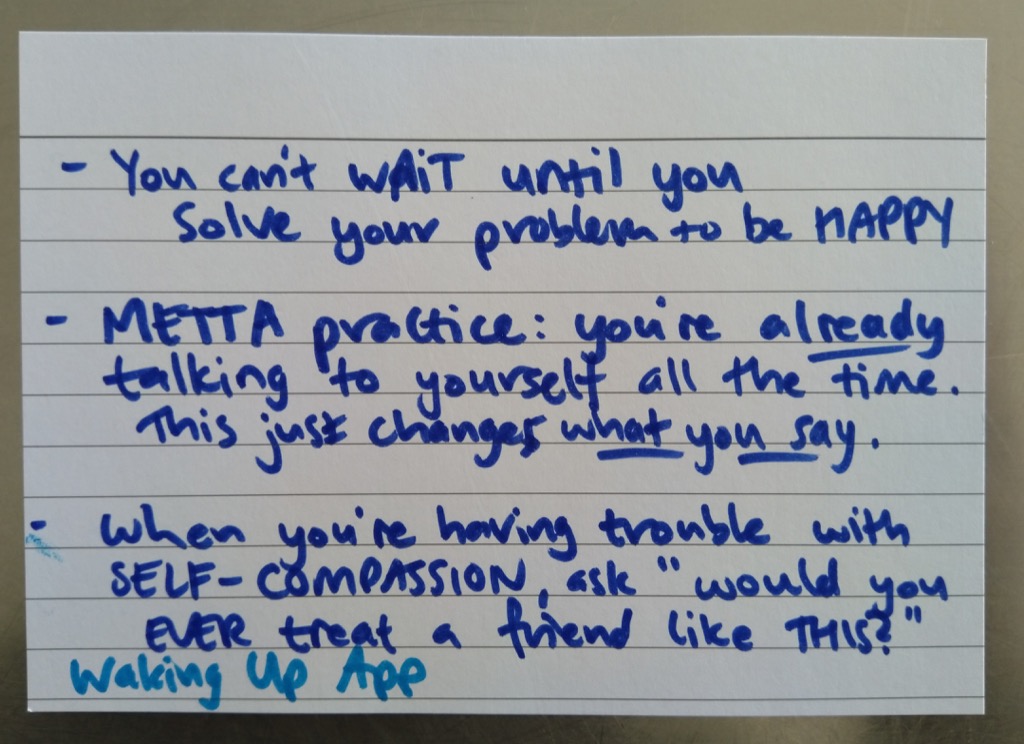 - You can't WAiT until you
Solve your problem to be HAPPY
- METTA practice: you're already
talking to yourself all the time.
This just changes what you say.
- When you're having trouble with
SELF-COMPASSION, ask "would you
EVER treat a friend like THIS?"
Waking Up App